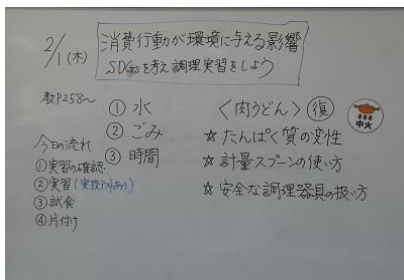 2/1(木)
消費行動が環境に与える影響
SDGsを考え調理実習をしよう
教P258〜
①水
②ごみ
③時間
今日の流れ
①実習の確認
②実習(実技テストあり)
③試食
④片付け
<肉うどん> 復
中火
☆たんぱく質の変性
☆計量スプーンの使い方
☆安全な調理器具の扱い方